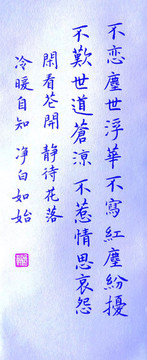 不恋塵世浮華不寫紅塵紛擾
不歎世道蒼涼不惹情思哀怨
閑看花開 靜待花落
冷暖自知 净白如始